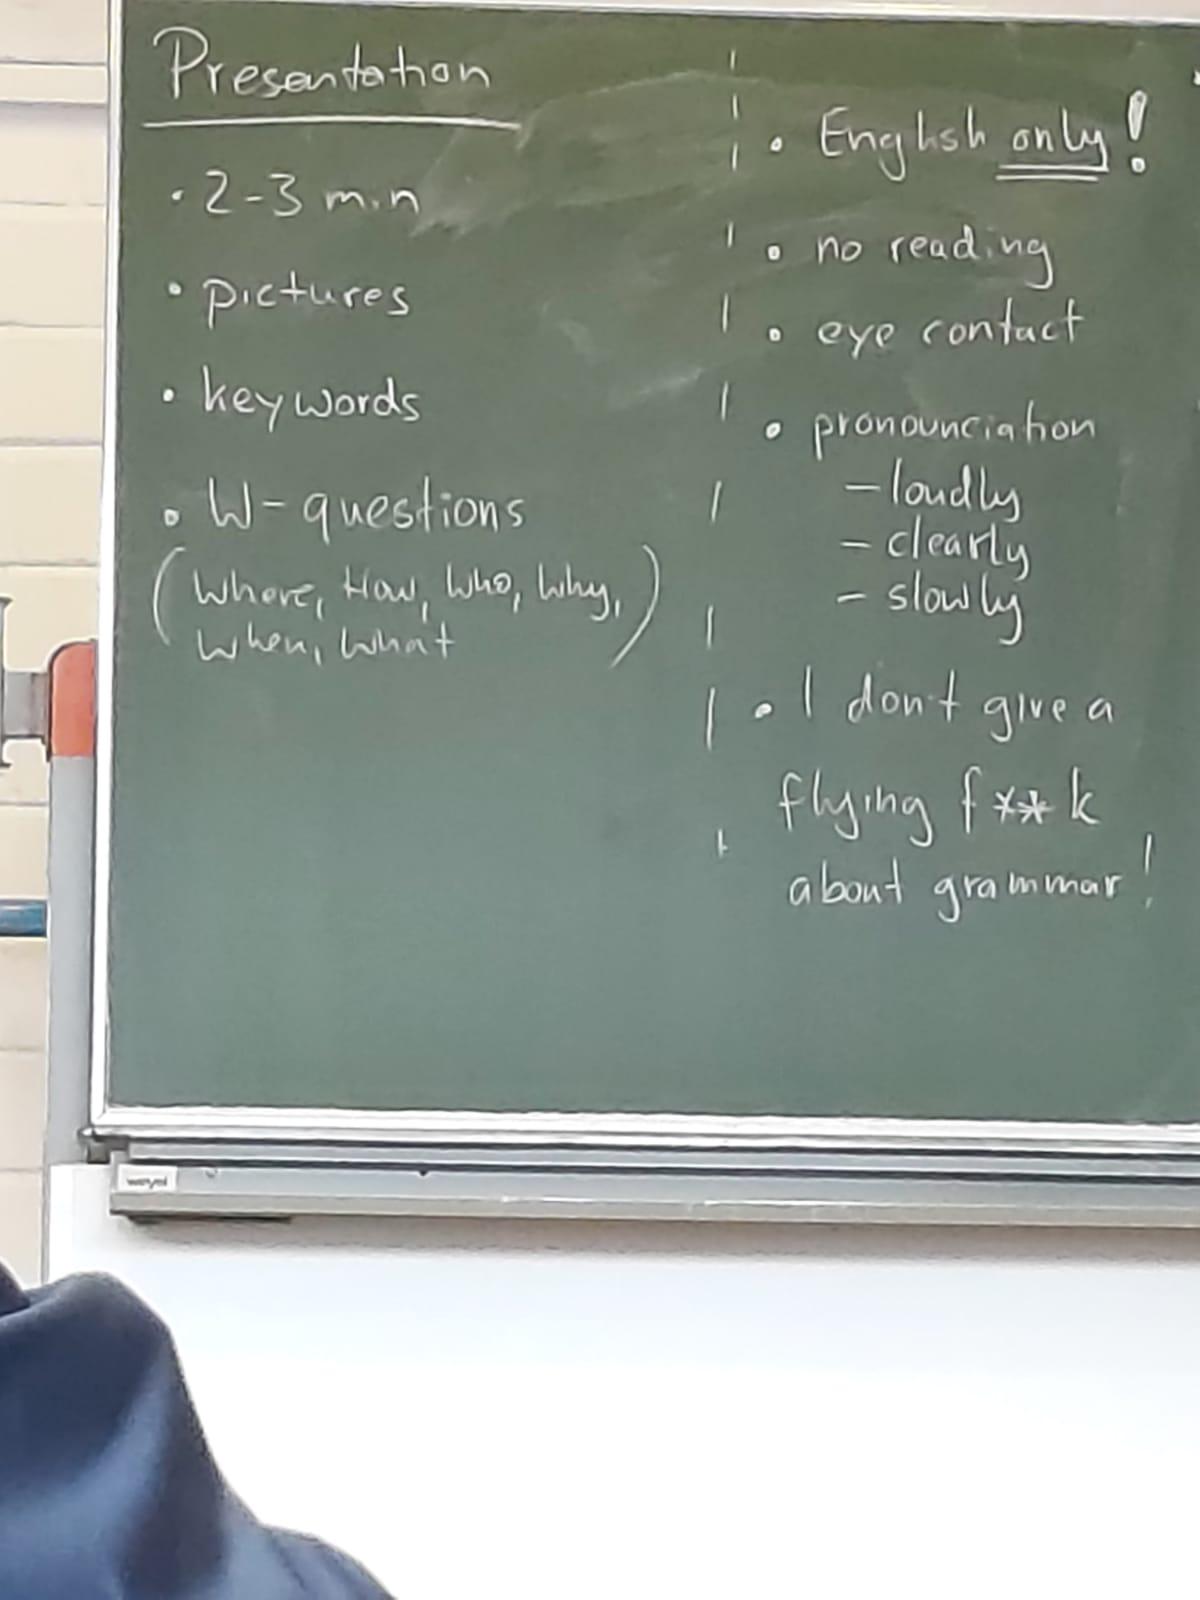 Presentation
• 2-3 min
• pictures
• keywords
• W-questions
(Where, How, Who, Why,
When, What)
• English only!
• no reading
• eye contact
• pronounciation
- loudly
- clearly
- slowly
• I don't give a
flying f**k
about grammar!